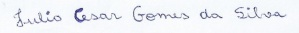 Julio Cesar Gomes da Silva